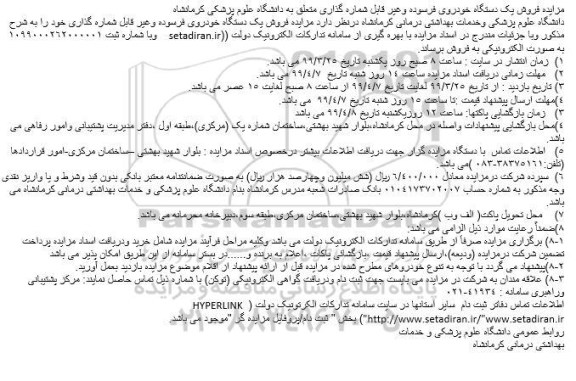 مزایده فروش یک دستگاه خودروی فرسوده وغیر قابل شماره گذاری متعلق به دانشگاه علوم پزشکی کرمانشاه
دانشگاه علوم پزشکی وخدمات بهداشتی درمانی کرمانشاه درنظر دارد مزایده فروش یک دستگاه خودروی فرسوده وغیر قابل شماره گذاری خود را به شرح
مذکور وبا جزئیات مندرج در اسناد مزایده با بهره گیری از سامانه تدارکات الکترونیک دولت ((setadiran.ir وبا شماره ثبت ۱۰۹۹۰۰۰۲۶۲۰۰۰۰۰۱
به صورت الکترونیکی به فروش برساند.
۱) زمان انتشار در سایت : ساعت ۸ صبح روز یکشنبه تاریخ ۹۹/۳/۲۵ می باشد.
۲) مهلت زمانی دریافت اسناد مزایده ساعت ۱۴ روز شنبه تاریخ ۹۹/۴/۷ می باشد.
۳) تاریخ بازدید : از تاریخ ۹۹/۳/۲۵ لغایت تاریخ ۹۹/۴/۷ از ساعت ۸ صبح لغایت ۱۵ عصر می باشد.
۴)مهلت ارسال پیشنهاد قیمت :تا ساعت ۱۵ روز شنبه تاریخ ۹۹/۴/۷ می باشد.
۳) زمان بازگشایی پاکتها: ساعت ۱۲ روزیکشنبه تاریخ ۹۹/۴/۸ می باشد
۴)محل بازگشایی پیشنهادات واصله در محل کرمانشاه،بلوار شهید بهشتی،ساختمان شماره یک (مرکزی)،طبقه اول ،دفتر مدیریت پشتیبانی وامور رفاهی می
باشد.
۵) اطلاعات تماس با دستگاه مزایده گزار جهت دریافت اطلاعات بیشتر درخصوص اسناد مزایده : بلوار شهید بهشتی –ساختمان مرکزی-امور قراردادها
(تلفن:۳۸۳۷۵۱۶۱-۰۸۳ )می باشد.
۶) سپرده شرکت درمزایده معادل ۶/۴۰۰/۰۰۰ ریال (شش میلیون وچهارصد هزار ریال) به صورت ضمانتنامه معتبر بانکی بدون قید وشرط و یا واریز نقدی
وجه مذکور به شماره حساب ۰۱۰۴۱۷۳۷۰۲۰۰۷ بانک صادرات شعبه مدرس کرمانشاه بنام دانشگاه علوم پزشکی و خدمات بهداشتی درمانی کرمانشاه می
باشد.
۷) محل تحویل پاکت( الف وب )کرمانشاه،بلوار شهید بهشتی،ساختمان مرکزی،طبقه سوم،دبیرخانه محرمانه می باشد.
۸)ضمنا رعایت موارد ذیل الزامی می باشد:
۸-۱) برگزاری مزایده صرفا از طریق سامانه تدارکات الکترونیک دولت می باشد وکلیه مراحل فرآیند مزایده شامل خرید ودریافت اسناد مزایده پرداخت
تضمین شرکت درمزایده (ودیعه)،ارسال پیشنهاد قیمت ،بازگشائی پاکات ،اعلام به برنده و......در بستر سامانه از این طریق امکان پذیر می باشد
۸-۲)پیشنهاد می گردد با توجه به تنوع خودروهای مطرح شده در مزایده قبل از ارائه پیشنهاد از اقلام موضوع مزایده بازدید بعمل آورید.
۸-۳) علاقه مندان به شرکت در مزایده می بایست جهت ثبت نام ودریافت گواهی الکترونیکی (توکن) با شماره ذیل تماس حاصل نمایند: مرکز پشتیبانی
وراهبری سامانه : ۴۱۹۳۴-۰۲۱
اطلاعات تماس دفاتر ثبت نام سایر استانها در سایت سامانه تدارکات الکرتونیک دولت ( HYPERLINK
"http://www.setadiran.ir/"www.setadiran.ir) بخش " ثبت نام/پروفایل مزایده گر "موجود می باشد.
روابط عمومی دانشگاه علوم پزشکی و خدمات
بهداشتی درمانی کرمانشاه